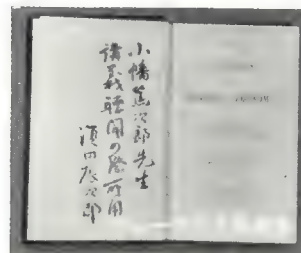 小幡篤次郎先生
講義聴聞の際所用
須田辰次郎